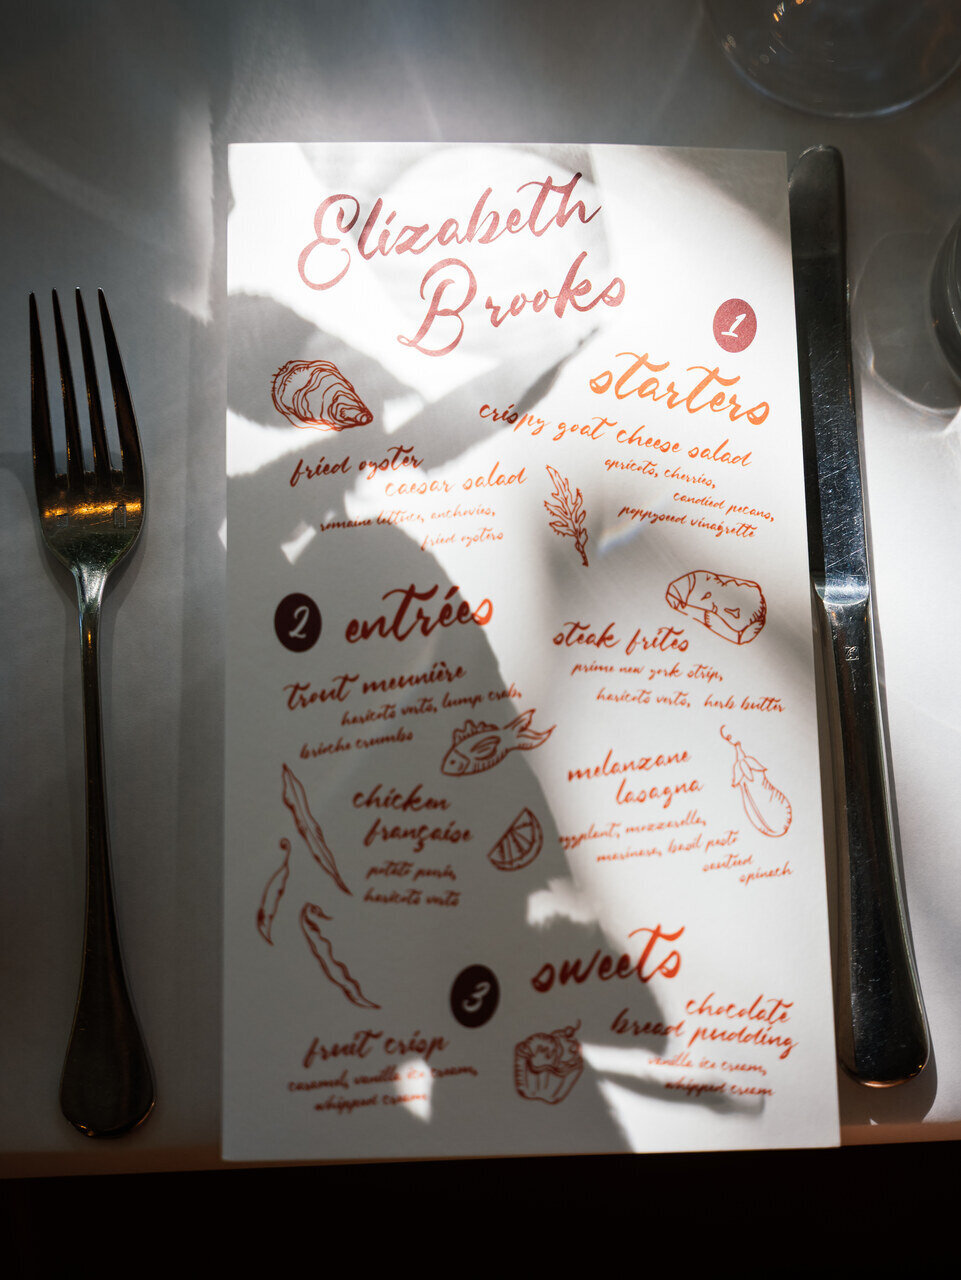 Elizabeth
Brooks
1
starters
fried oyster
caesar salad
romaine lettuce, anchovies,
fried oysters
crispy goat cheese salad
apricots, cherries,
candied pecans,
poppyseed vinaigrette
2
entrées
trout meunière
haricots verts, lump crab,
brioche crumbs
steak frites
prime new york strip,
haricots verts, herb butter
chicken
française
potato purée,
haricots verts
melanzane
lasagna
eggplant, mozzarella,
marinara, basil pesto
sauteed
spinach
3
sweets
fruit crisp
caramel, vanilla ice cream,
whipped cream
chocolate
bread pudding
vanilla ice cream,
whipped cream